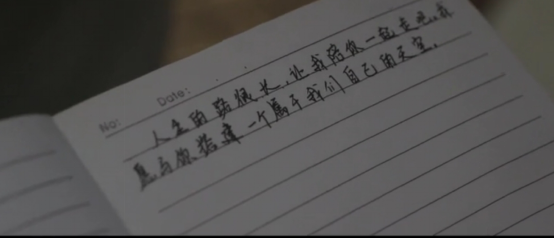 No: Date:
人生的路很长,让我陪你一起走吧。我
愿与你搭建一个属于我们自己的天空。